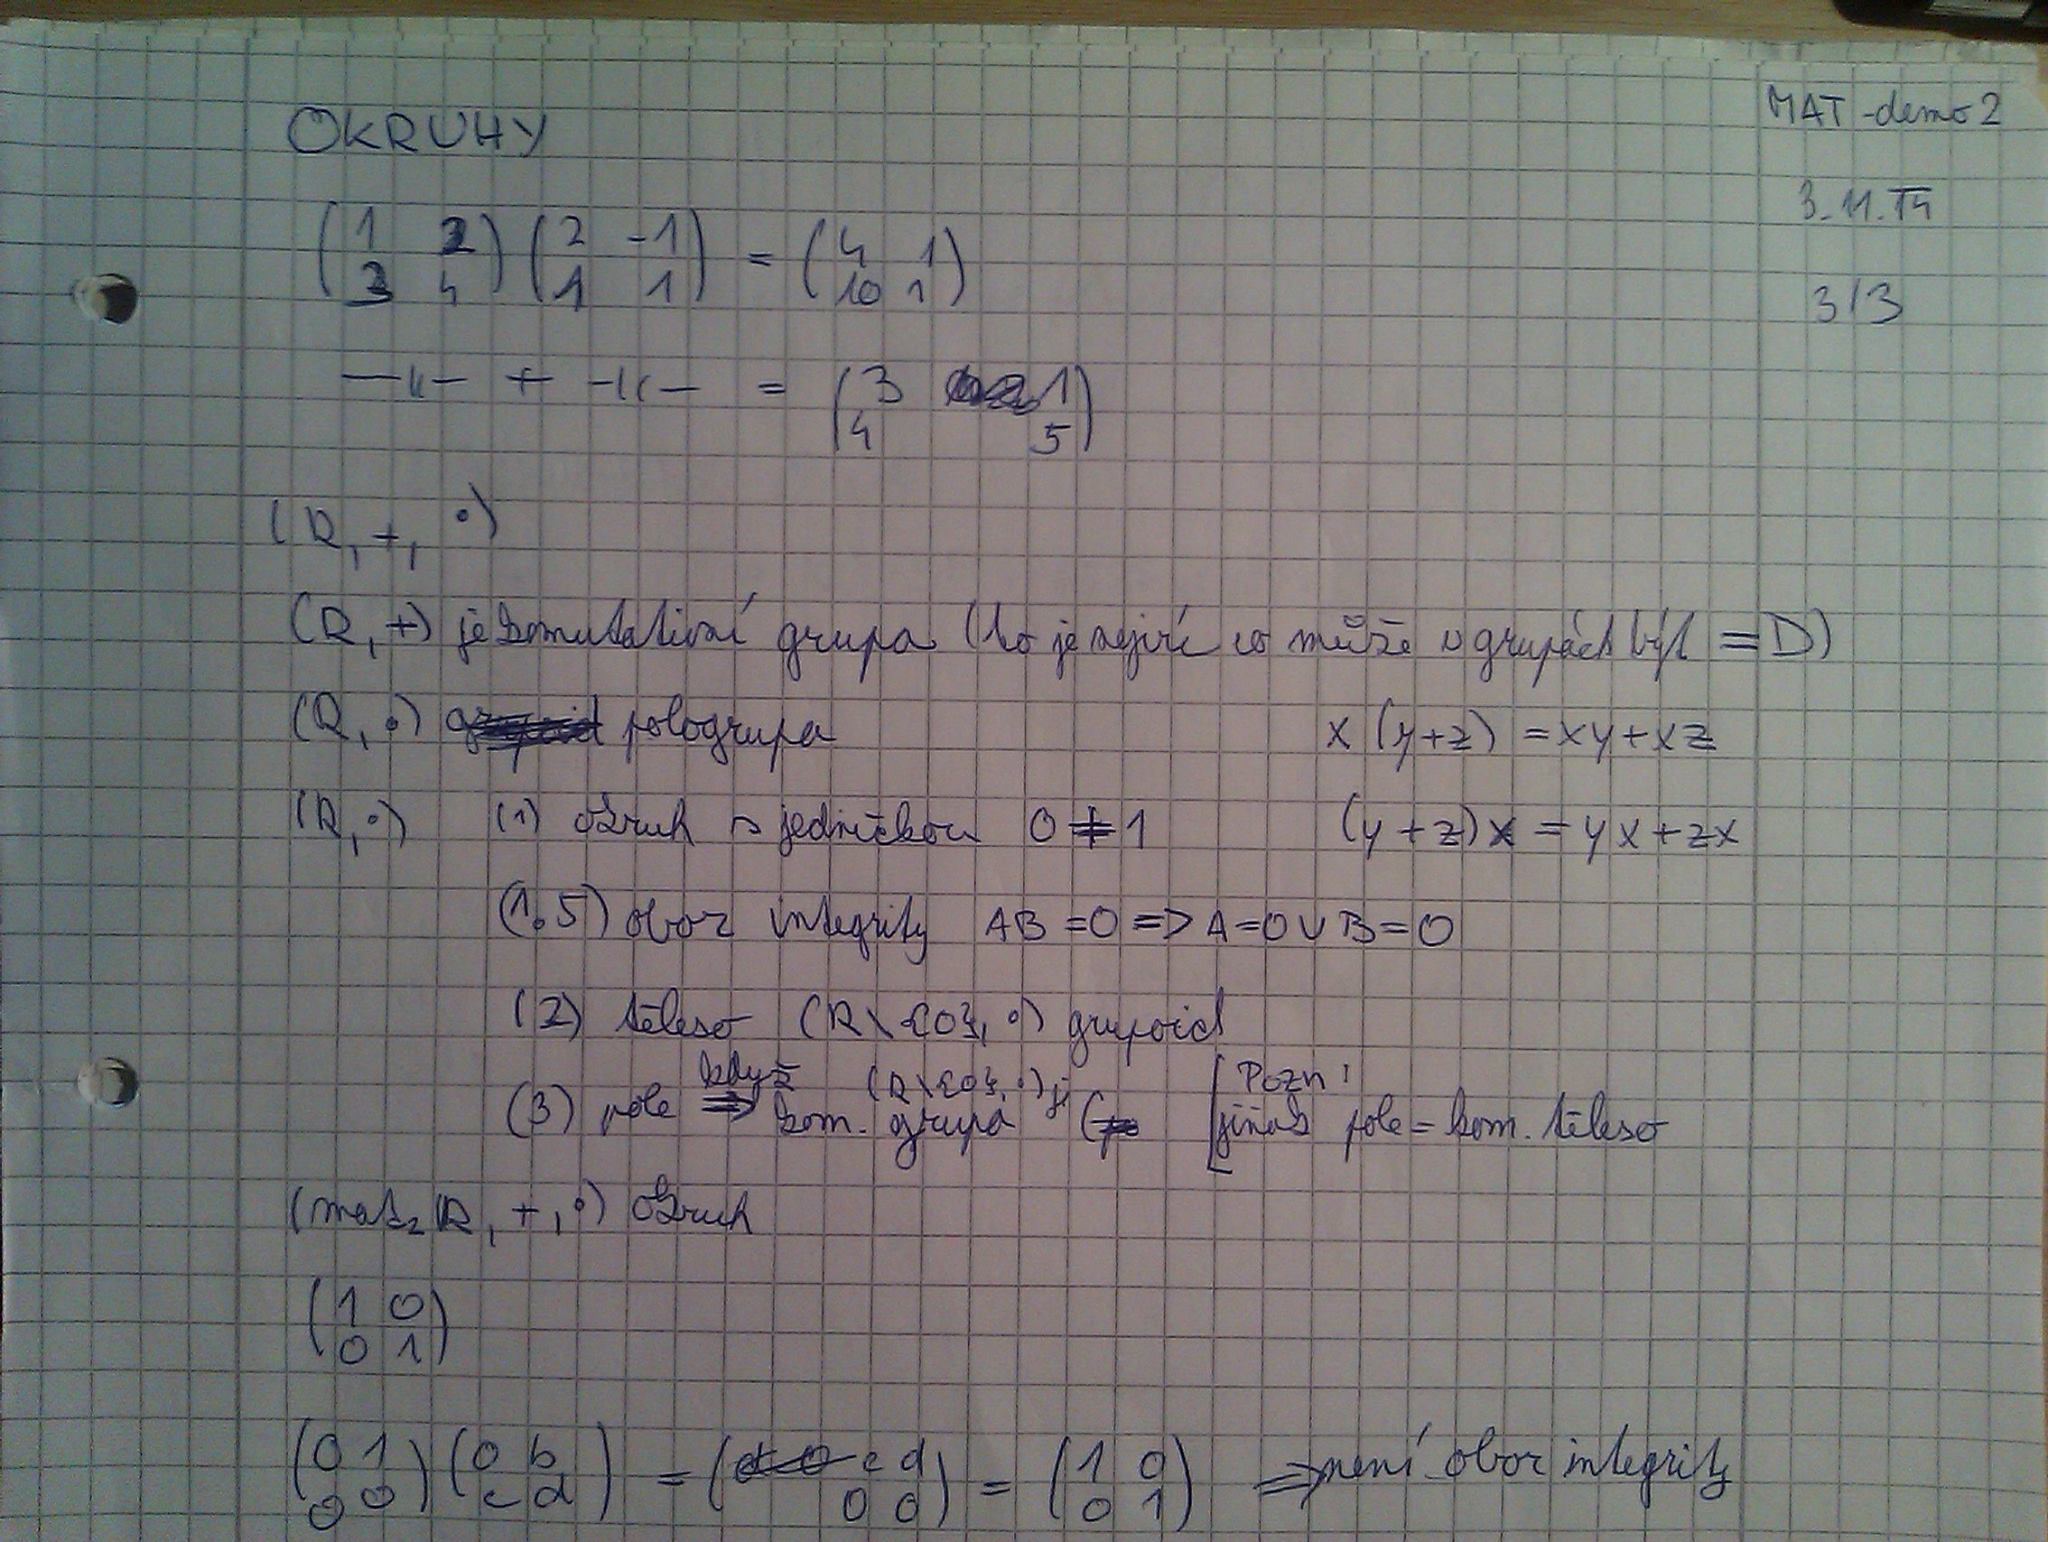 OKRUHY
MAT-demo 2
3.11.14
3/3
(1 2
3 4) (2 -1
1 1) = (4 1
10 1)
—〃— + —〃— = (3 1
4 5)
(R, +, ∘)
(R, +) je komutativní grupa (to je nejvíc co může v grupách být =D)
(R, ∘) pologrupa x (y+z) = xy+xz
(R, ∘) (1) okruh s jedničkou 0 ≠ 1 (y+z)x = yx+zx
(1.5) obor integrity AB = 0 => A=0 ∨ B=0
(2) těleso (R\{0}, ∘) grupoid
(3) pole když (R\{0}, ∘) je kom. grupa [Pozn:
jinak pole = kom. těleso
(mat₂ R, +, ∘) okruh
(1 0
0 1)
(0 1
0 0) (0 b
c d) = (c d
0 0) = (1 0
0 1) => není obor integrity